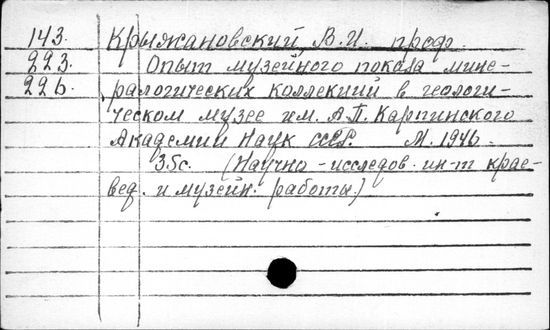 143. Крыжановский, В.И. проф.
223. Опыт музейного показа мине-
226. ралогических коллекций в геологи-
ческом музее им. А.П. Карпинского
Академии Наук СССР. М. 1946.
35с. (Научно-исследов. ин-т крае-
вед. и музейн. работы.)